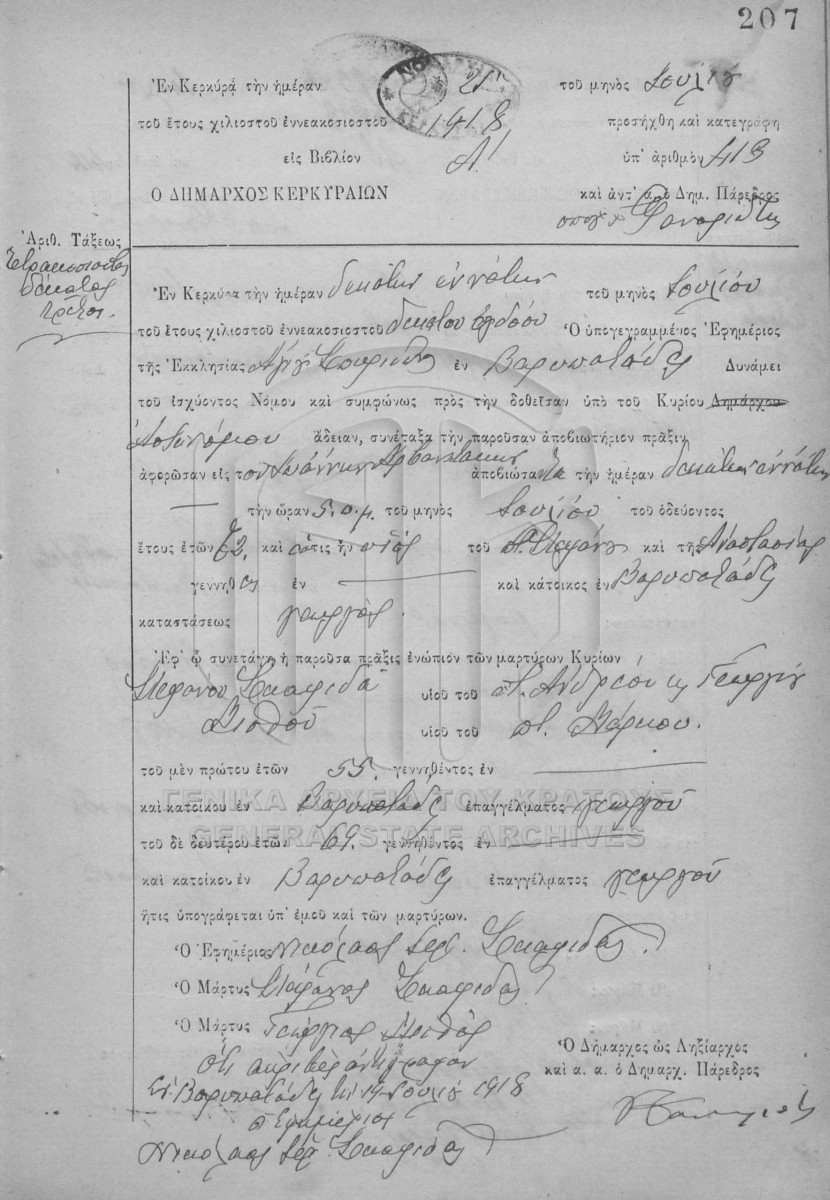 207
Ἐν Κερκύρᾳ τὴν ἡμέραν 21 τοῦ μηνὸς Ἰουλίου
τοῦ ἔτους χιλιοστοῦ ἐννεακοσιοστοῦ 1918 προσήχθη καὶ κατεγράφη
εἰς Βιβλίον Α' ὑπ' ἀριθμὸν 413
Ὁ ΔΗΜΑΡΧΟΣ ΚΕΡΚΥΡΑΙΩΝ καὶ ἀντ' α. ὁ Δημ. Πάρεδρος
Ἀριθ. Τάξεως
τετρακοσιοστὸς
δέκατος
τρίτος.
Ἐν Κερκύρᾳ τὴν ἡμέραν δεκάτην ἐννάτην τοῦ μηνὸς Ἰουλίου
τοῦ ἔτους χιλιοστοῦ ἐννεακοσιοστοῦ δεκάτου ὀγδόου Ὁ ὑπογεγραμμένος Ἐφημέριος
τῆς Ἐκκλησίας Ἁγίου ἐν Βαρυπατάδες Δυνάμει
τοῦ ἰσχύοντος Νόμου καὶ συμφώνως πρὸς τὴν δοθεῖσαν ὑπὸ τοῦ Κυρίου Δημάρχου
Ἀστυνόμου ἄδειαν, συνέταξα τὴν παροῦσαν ἀποβιωτήριον πρᾶξιν
ἀφορῶσαν εἰς τὸν Ἰωάννην ἀποβιώσαντα τὴν ἡμέραν δεκάτην ἐννάτην
— τὴν ὥραν 5 π.μ. τοῦ μηνὸς Ἰουλίου τοῦ ὁδεύοντος
ἔτους ἐτῶν 72. καὶ ὅστις ἦν υἱὸς τοῦ π. Στεφάνου καὶ τῆς Ἀναστασίας
γεννηθεὶς ἐν — καὶ κάτοικος ἐν Βαρυπατάδες
καταστάσεως γεωργὸς.
Ἐφ' ᾧ συνετάγη ἡ παροῦσα πρᾶξις ἐνώπιον τῶν μαρτύρων Κυρίων
Στεφάνου Σκαφιδᾶ υἱοῦ τοῦ π. Ἀνδρέου κ Γεωργίου
υἱοῦ τοῦ π. Μάρκου.
τοῦ μὲν πρώτου ἐτῶν 55. γεννηθέντος ἐν —
ΓΕΝΙΚΑ ΑΡΧΕΙΑ ΤΟΥ ΚΡΑΤΟΥΣ
καὶ κατοίκου ἐν Βαρυπατάδες ἐπαγγέλματος γεωργοῦ
GENERAL STATE ARCHIVES
τοῦ δὲ δευτέρου ἐτῶν 69. γεννηθέντος ἐν —
καὶ κατοίκου ἐν Βαρυπατάδες ἐπαγγέλματος γεωργοῦ
ἥτις ὑπογράφεται ὑπ' ἐμοῦ καὶ τῶν μαρτύρων.
Ὁ Ἐφημέριος Νικόλαος Ἱερ. Σκαφιδᾶς
Ὁ Μάρτυς Στέφανος Σκαφιδᾶς
Ὁ Μάρτυς Γεώργιος
Ὅτι ἀκριβὲς ἀντίγραφον
Ἐν Βαρυπατάδες τῇ 19 Ἰουλίου 1918
ὁ Ἐφημέριος
Νικόλαος Ἱερ. Σκαφιδᾶς
Ὁ Δήμαρχος ὡς Ληξίαρχος
καὶ α. α. ὁ Δημαρχ. Πάρεδρος